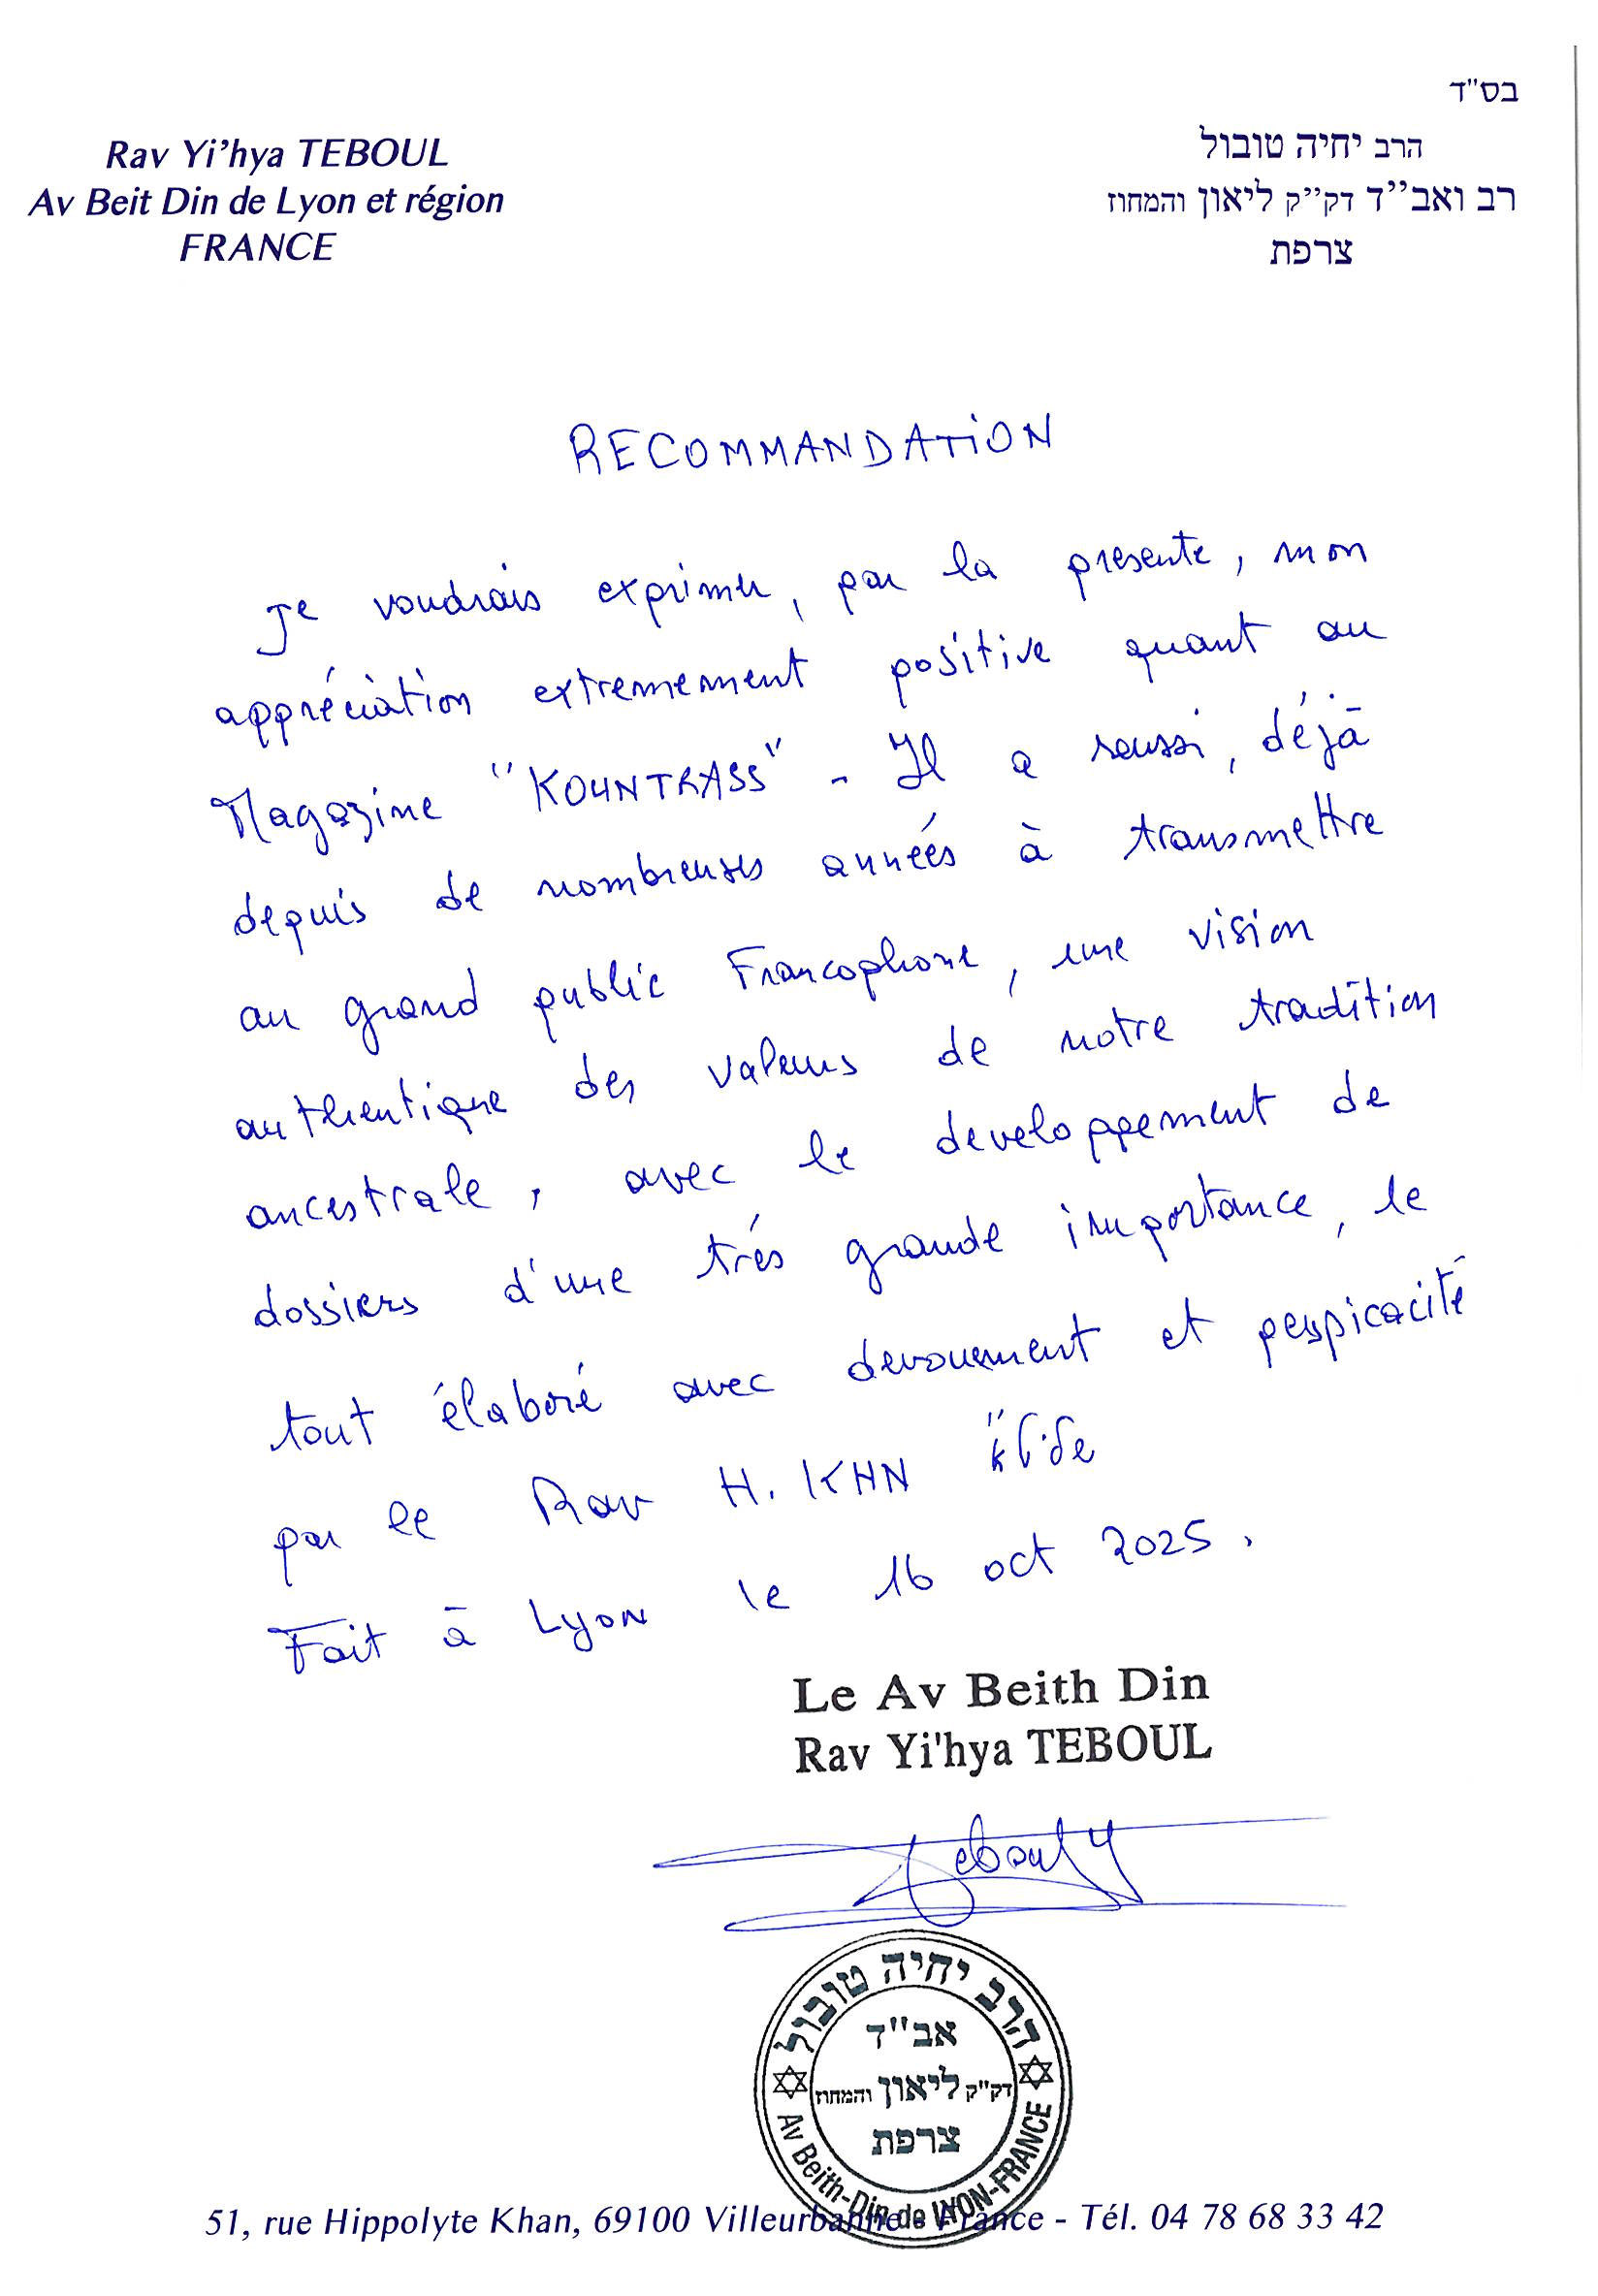 בס"ד
Rav Yi'hya TEBOUL
Av Beit Din de Lyon et région
FRANCE
הרב יחיה טובול
רב ואב''ד דק''ק ליאון והמחוז
צרפת
RECOMMANDATION
Je voudrais exprimer, par la presente, mon
appréciation extremement positive quant au
Magazine "KOUNTRASS" - Il a reussi, déjà
depuis de nombreuses années à transmettre
au grand public Francophone, une vision
authentique des valeurs de notre tradition
ancestrale, avec le developpement de
dossiers d'une très grande importance, le
tout élaboré avec devouement et perspicacité
par le Rav H. KHN
Fait à Lyon le 16 oct 2025.
Le Av Beith Din
Rav Yi'hya TEBOUL
Teboul Y
הרב יחיה טובול
אב"ד
דק"ק ליאון והמחוז
צרפת
Av Beith-Din de LYON-FRANCE
51, rue Hippolyte Khan, 69100 Villeurbanne - France - Tél. 04 78 68 33 42